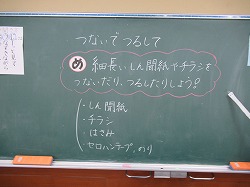 つないで つるして
め 細長いしん聞紙やチラシを
つないだり、つるしたりしよう！
・しん聞紙
・チラシ
・はさみ
・セロハンテープ、のり